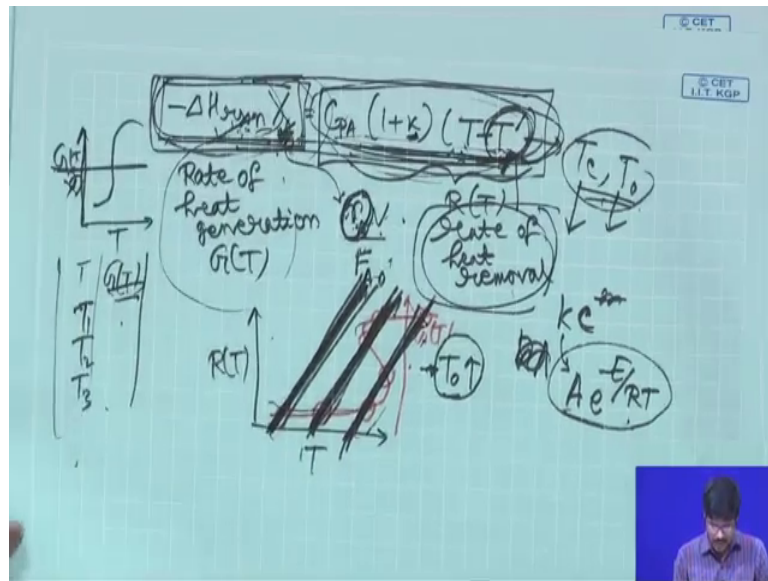 © CET
I.I.T. KGP
© CET
I.I.T. KGP
-ΔH rxn X = C_PA (1+κ) (T-T')
T_c, T_0
G(T)
T
Rate of
heat
generation
G(T)
R(T)
Rate of
heat
removal
V
F_A0
T G(T)
T_1
T_2
T_3
R(T)
T
G(T)
T_0 ↑
k e
A e^-E/RT